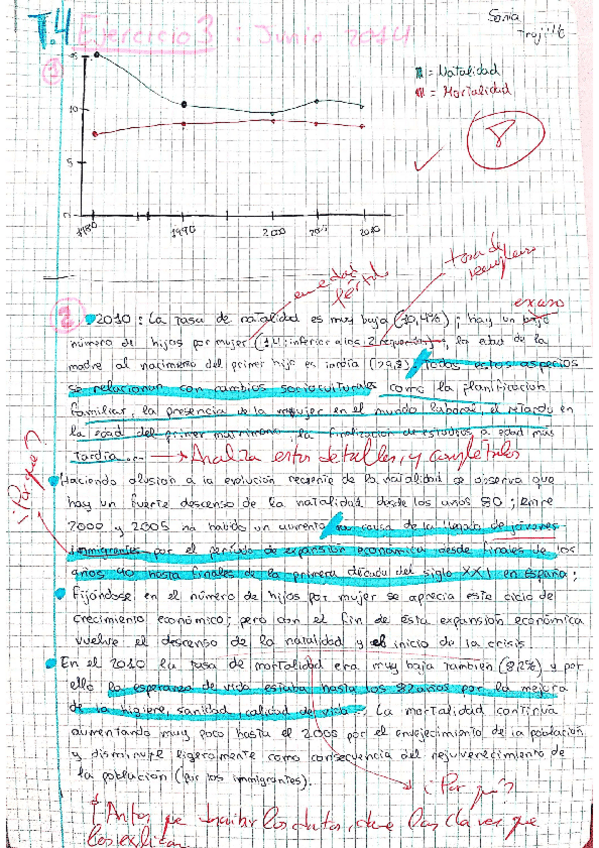 Sonia
Trujillo
T.4 Ejercicio 3 : Junio 2014
①
= Natalidad
= Mortalidad
15
10
5
0
1980 1990 2000 2005 2010
8
tasa de
reemplazo
en edad
fértil
escaso
② 2010: La tasa de natalidad es muy baja (10,4%); hay un bajo
número de hijos por mujer (1,4: inferior a los 2 requeridos); la edad de la
madre al nacimiento del primer hijo es tardía (29,8). Todos estos aspectos
se relacionan con cambios socioculturales como la planificación
familiar, la presencia de la mujer en el mundo laboral, el retardo en
la edad del primer matrimonio, la finalización de estudios a edad más
tardía... → Analiza estos detalles, y complétalos
¿Por qué?
Haciendo alusión a la evolución reciente de la natalidad se observa que
hay un fuerte descenso de la natalidad desde los años 80; entre
2000 y 2005 ha habido un aumento a causa de la llegada de jóvenes
inmigrantes por el período de expansión económica desde finales de los
años 90 hasta finales de la primera década del siglo XXI en España;
Fijándose en el número de hijos por mujer se aprecia este ciclo de
crecimiento económico; pero con el fin de ésta expansión económica
vuelve el descenso de la natalidad y el inicio de la crisis.
En el 2010 la tasa de mortalidad era muy baja también (8,2%) y por
ello la esperanza de vida estaba hasta los 82 años por la mejora
de la higiene, sanidad, calidad de vida... La mortalidad continúa
aumentando muy poco hasta el 2005 por el envejecimiento de la población
y disminuye ligeramente como consecuencia del rejuvenecimiento de
la población (por los inmigrantes).
¿Por qué?
Antes que escribir los datos, dame las claves que
los explican